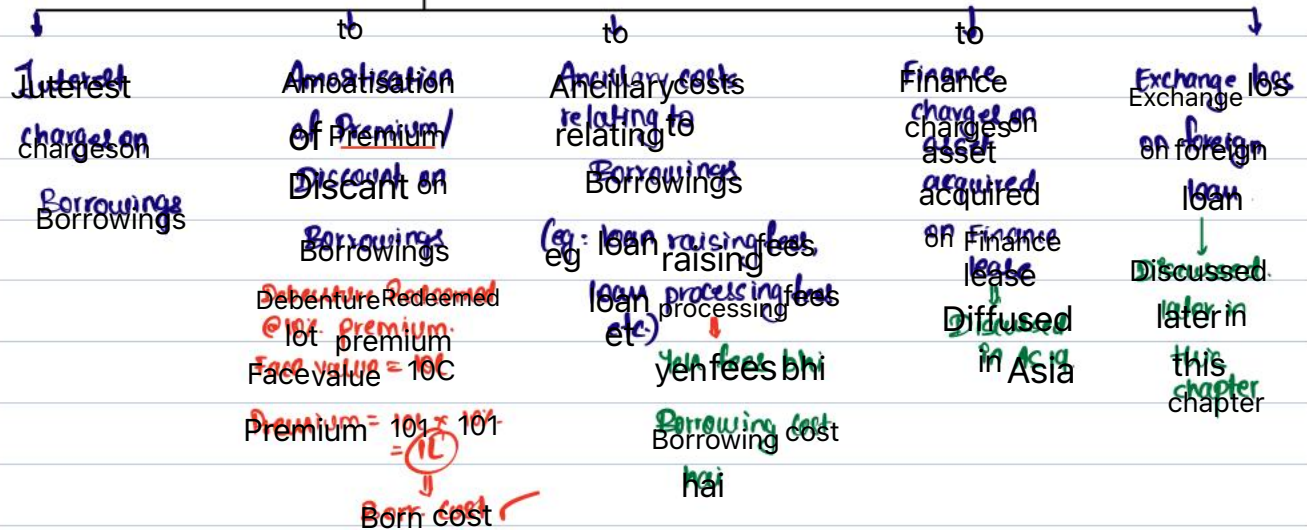 Interest
charges on
Borrowings
Amortisation
of Premium/
Discount on
Borrowings
Debenture Redeemed
@10% premium.
Face value = 10L
Premium = 10L × 10%
= 1L
⇓
Borr. cost ✓
Ancillary costs
relating to
Borrowings
(eg: loan raising fees,
loan processing fees
etc.)
yeh fees bhi
Borrowing cost
hai
Finance
charges on
asset
acquired
on Finance
lease
⇓
Discussed
in AS 19
Exchange loss
on foreign
loan
↓
Discussed
later in
this
chapter